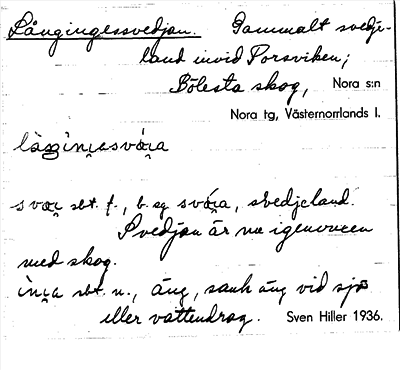 Långingessvedjan. Gammalt svedje-
land invid Porsviken;
Bölesta skog, Nora s:n
Nora tg, Västernorrlands l.
sbt. f., b. sg svóṛa, svedjeland.
Svedjan är nu igenvuxen
med skog.
sbt. n., äng, sank äng vid sjö
eller vattendrag. Sven Hiller 1936.